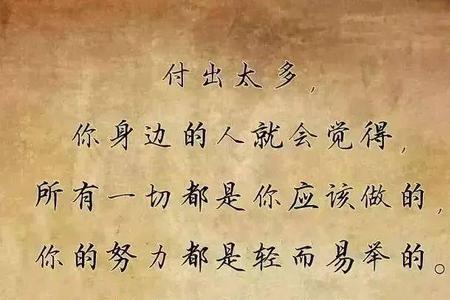 付出太多，
你身边的人就会觉得，
所有一切都是你应该做的，
你的努力都是轻而易举的。